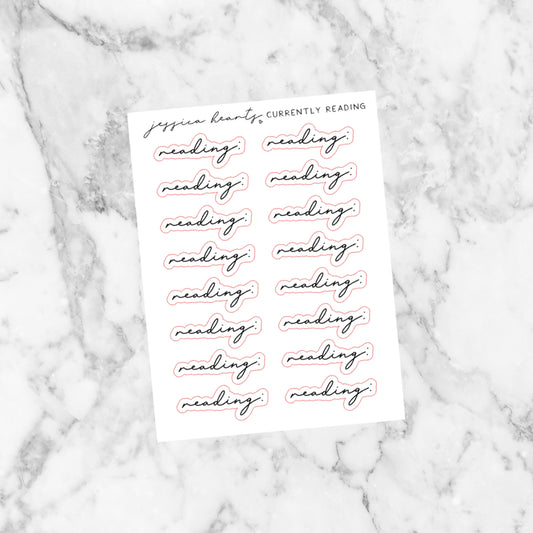 jessica hearts CURRENTLY READING
reading: reading:
reading: reading:
reading: reading:
reading: reading:
reading: reading:
reading: reading:
reading: reading:
reading: reading: